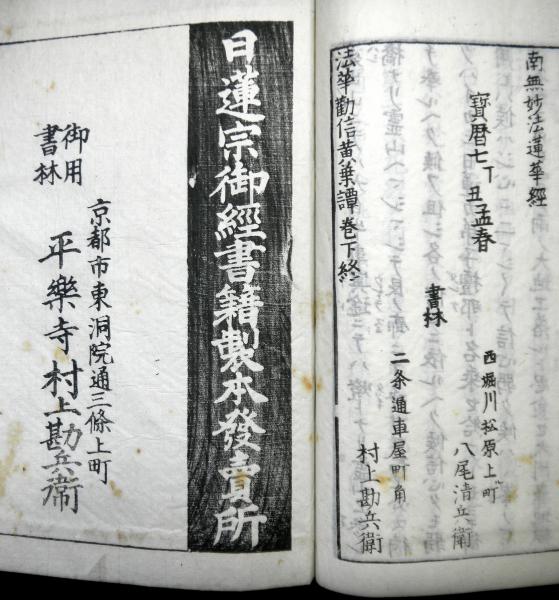 南無妙法蓮華經
寶暦七丁丑孟春
書林
西堀川松原上町
八尾清兵衛
二条通車屋町角
村上勘兵衛
法華勸信黄葉譚巻下終
日蓮宗御經書籍製本發賣所
京都市東洞院通三條上町
御用
書林
平樂寺村上勘兵衛